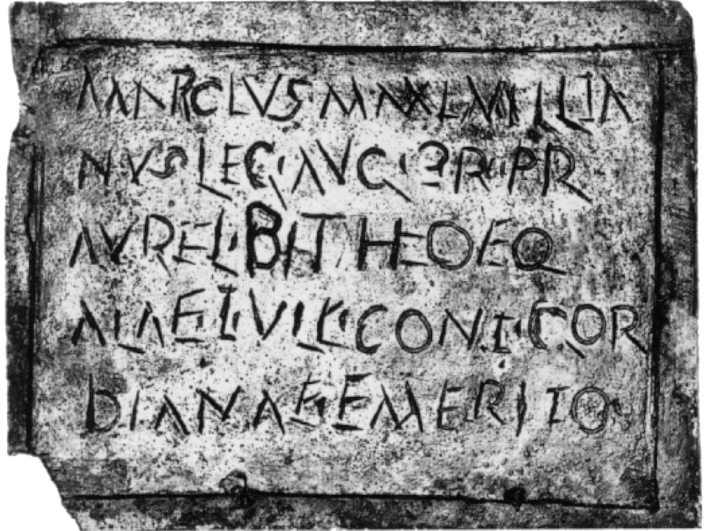 MARCIVS MAXIMILLIA
NVS LEG·AVG·PR·PR
AVREL·BITHEO EQ
ALAE·I·VLP·CONT·GOR
DIANAE EMERITO